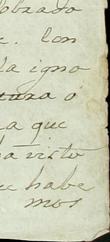 obrado
e. con
la igno
tura o
a que
a visto
e habe
mos